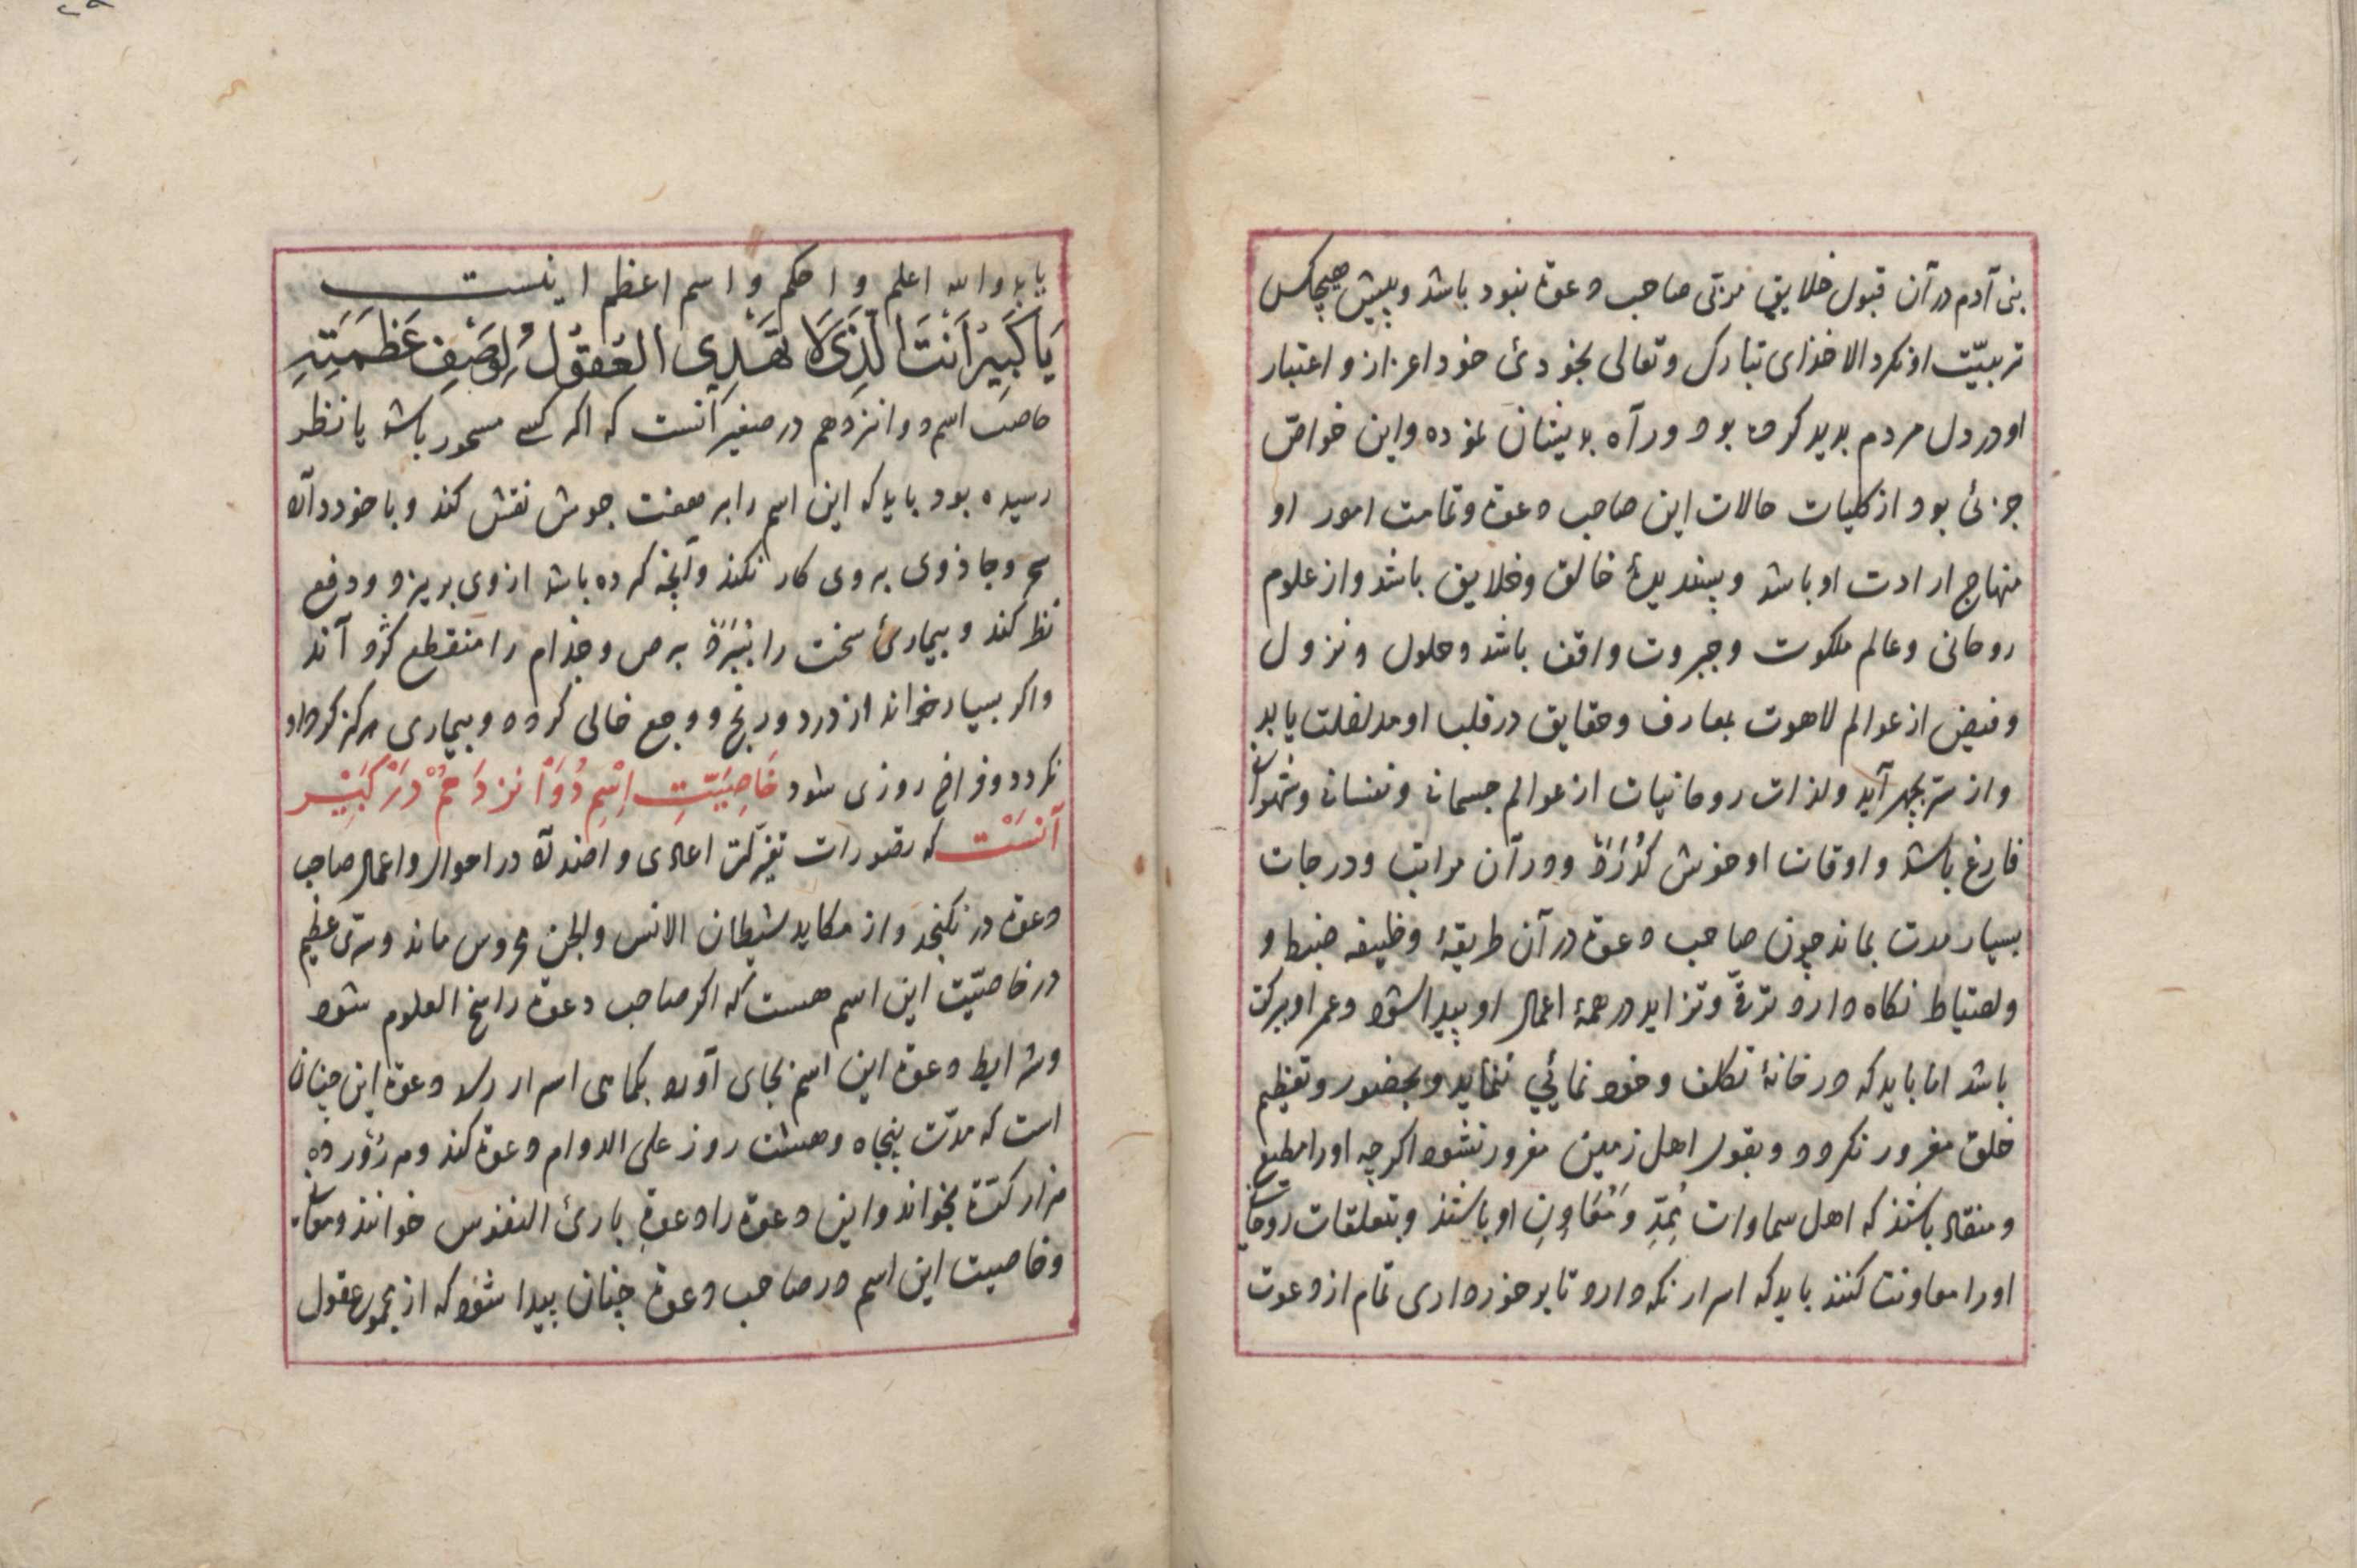 بنی آدم در آن قبول خلایق مربّی صاحب دعوة نبود باشد و پیش هیچکس
تربیّت او نکرد الا خذای تبارک و تعالی بخودئ خود اعزاز و اعتبار
او در دل مردم بدید کرده بود و راه بدیشان نموده و این خواصّ
جزئ بود از کلیات حالات این صاحب دعوة و تمامت امور او
منهاج ارادت او باشد و پسندیدۀ خالق و خلایق باشد و از علوم
روحانی و عالم ملکوت و جبروت واقف باشد و حلول و نزول
و فیض از عوالم لاهوت بمعارف و حقایق در قلب او مداخلت یابد
و از سرّ بجهر آید و لذات روحانیات از عوالم جسمانی و نفسانی و شهوانی
فارغ باشد و اوقات او خوش کذرد و در آن مراتب و درجات
بسیار مدت بماند چون صاحب دعوة در آن طریقۀ وظیفه ضبط و
و احتیاط نکاه دارد ترقّی و تزاید در همۀ اعمال او پیدا شود و عمر او برکت
باشد اما باید که در خانۀ تکلف و خود نمائي ننماید و بحضور و تعظیم
خلق مغرور نکردد و بقول اهل زمین مغرور نشود اکرچه او را مطیع
و منقاد باشند که اهل سماوات مُمِدِّ و مُعَاوِنِ او باشند و بتعلقات روحانی
او را معاونت کنند باید که اسرار نکه دارد تا برخورداری تمام از دعوت
یابد والله اعلم و احکم و اسم اعظم اینست
يَا كَبِيرُ اَنْتَ الَّذِي لَا تَهْدِي العُقُولُ لِوَصْفِ عَظَمَتِهِ
خاصیت اسم دوانزدهم در صغیر آنست که اکر کسی مسحور باشد یا نظر
رسیده بود باید که این اسم را بر هفت جوش نقش کند و با خود دارد
سحر و جاذوی بروی کار نکند و آنچه کرده باشد از وی بریزد و دفع
نظر کند و بیمارئ سخت را ببرد برص و جذام را منقطع کرداند
و اکر بسیار خواند از درد و رنج و وجع خالی کردد و بیماری هرکز کرد او
نکردد و فراخ روزی شود خَاصِیَّتِ اِسْمِ دُوَانزدَهُمْ دَرْ کَبِیْر
آنسْت که تصورات اعادی و اضداد در احوال و اعمال صاحب
دعوة در نکنجد و از مکاید شیطان الانس والجن محروس ماند و سرّی عظیم
در خاصیّت این اسم هست که اکر صاحب دعوة راسخ العلوم شود
و شرایط دعوة این اسم بجای آورد بکماهی اسرار رسد دعوة این چنان
است که مدّت پنجاه و هشت روز علی الدوام دعوة کند و هر روز ده
هزار کرّة بخواند و این دعوة را دعوةِ بارئ النفوس خوانند
و خاصیت این اسم در صاحب دعوة چنان پیدا شود که از مجموع عقول